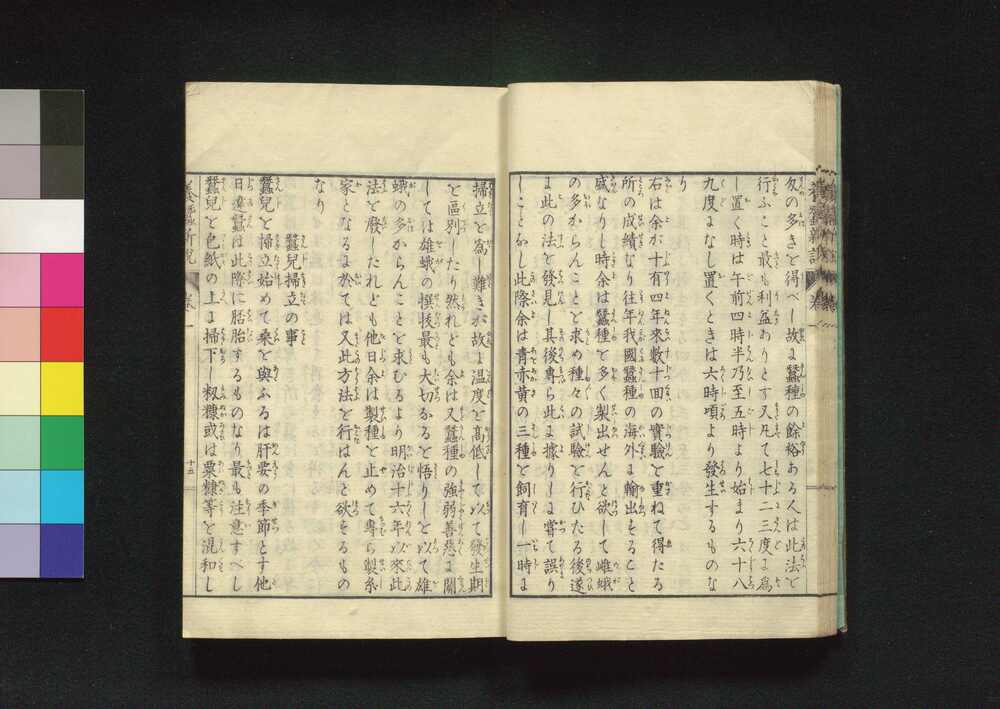 匁の多きを得べし故に蠶種の餘裕ある人は此法を
行ふこと最も利益ありとす又凡て七十二三度に爲
し置く時は午前四時半乃至五時より始まり六十八
九度になし置くときは六時頃より發生するものな
り
右は余が十有四年來數十回の實驗を重ねて得たる
所の成績なり往年我國蠶種の海外に輸出することと
盛なりし時余は蠶種を多く製出せんと欲して雌蛾
の多からんことを求め種々の試驗を行ひたる後遂
に此の法を發見し其後專ら此に據りしに嘗て誤り
しことなし此際余は青赤黄の三種を飼育し一時に
掃立を爲し難きが故に温度を高低して以て發生期
を區別したり然れども余は又蠶種の強弱善惡に關
しては雄蛾の撰拔最も大切なると悟りしを以て雄
蛾の多からんことを求むるより明治十六年以來此
法を廢したれども他日余は製種を止めて專ら製糸
家となるに於ては又此方法を行はんと欲するもの
なり
蠶兒掃立の事
蠶兒を掃立始めて桑を與ふるは肝要の季節とす他
日違蠶は此際に胚胎するものなり最も注意すべし
蠶兒を色紙の上に掃下し籾糠或は粟糠等を混和し
養蠶新説 卷一
十五